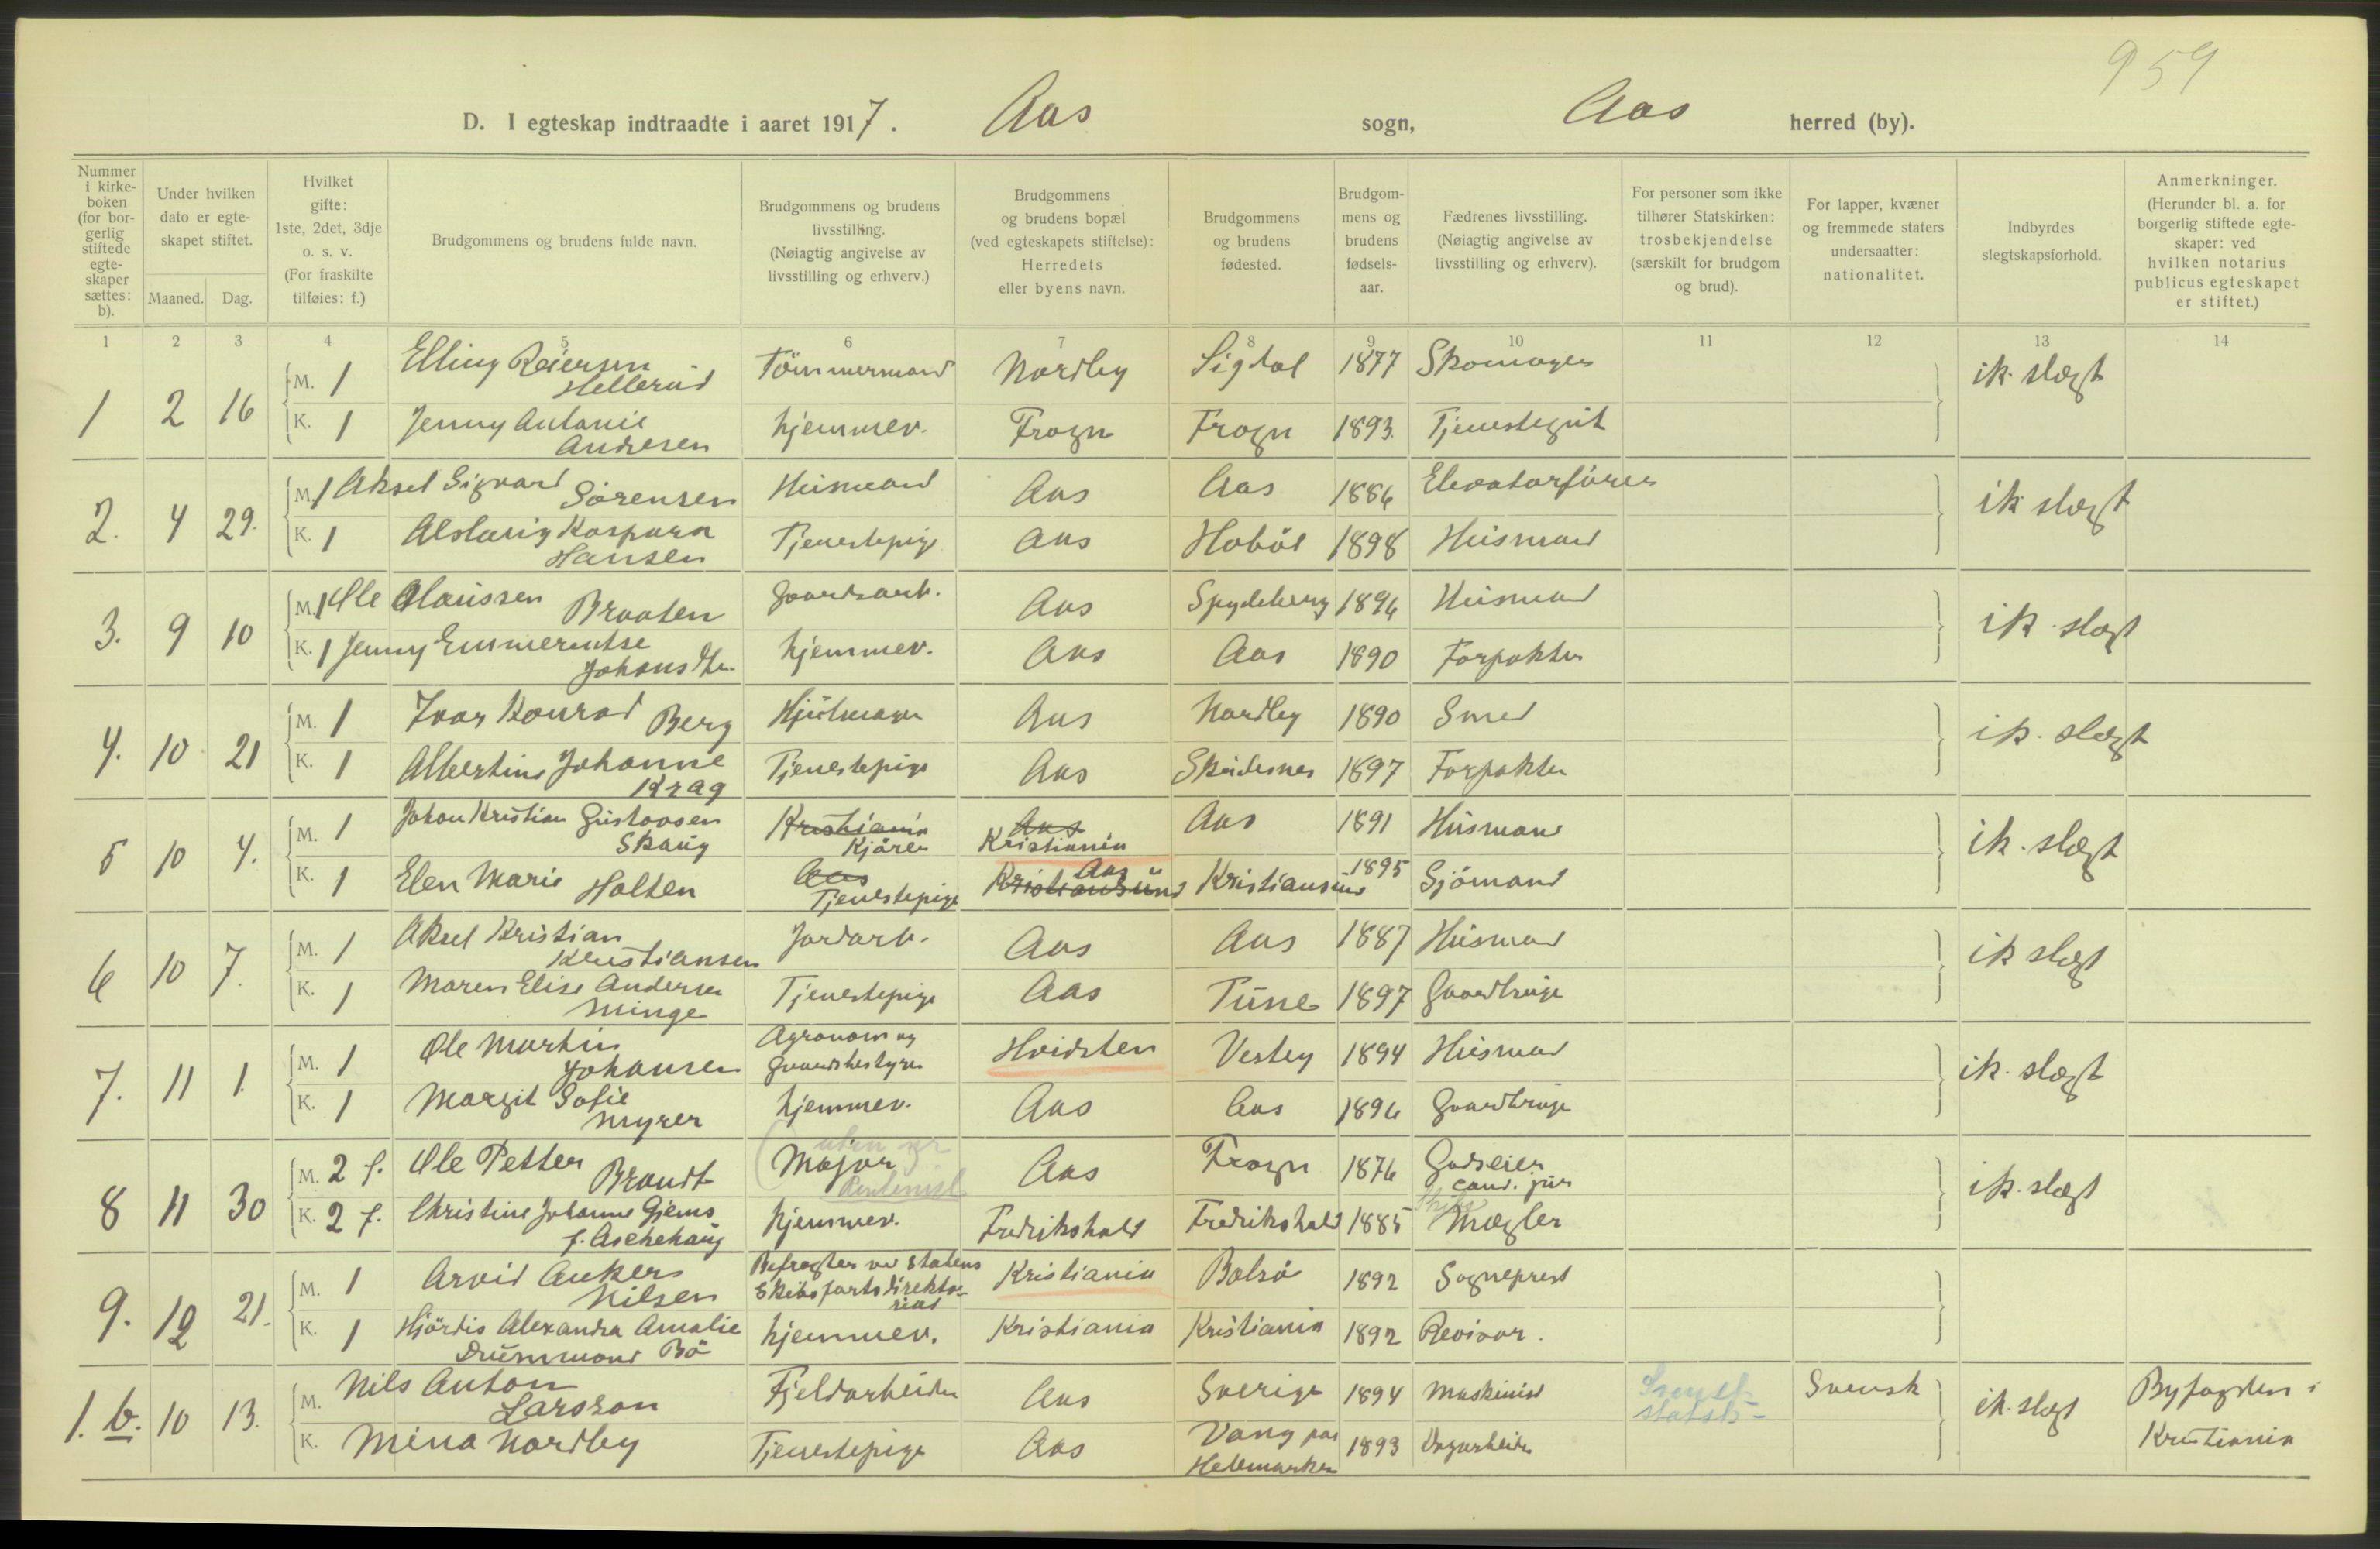 959
D. I egteskap indtraadte i aaret 1917. Aas sogn, Aas herred (by).
Nummer i kirke-boken (for bor-gerlig stiftede egte-skaper sættes: b).
Under hvilken dato er egte-skapet stiftet.
Maaned. Dag.
Hvilket gifte: 1ste, 2det, 3dje o. s. v. (For fraskilte tilføies: f.)
Brudgommens og brudens fulde navn.
Brudgommens og brudens livsstilling. (Nøiagtig angivelse av livsstilling og erhverv.)
Brudgommens og brudens bopæl (ved egteskapets stiftelse): Herredets eller byens navn.
Brudgommens og brudens fødested.
Brudgom-mens og brudens fødsels-aar.
Fædrenes livsstilling. (Nøiagtig angivelse av livsstilling og erhverv).
For personer som ikke tilhører Statskirken: trosbekjendelse (særskilt for brudgom og brud).
For lapper, kvæner og fremmede staters undersaatter: nationalitet.
Indbyrdes slegtskapsforhold.
Anmerkninger. (Herunder bl. a. for borgerlig stiftede egte-skaper: ved hvilken notarius publicus egteskapet er stiftet.)
1 2 3 4 5 6 7 8 9 10 11 12 13 14
1 2 16 M. 1 Elling Reiersen Hellerud Tömmermand Nordby Sigdal 1877 Skomager ik. slægt
K. 1 Jenny Antonie Andresen hjemmev. Frogn Frogn 1893. Tjenestegut
2. 4 29. M. 1 Aksel Sigvard Sörensen Husmand Aas Aas 1886 Elevatorförer ik slægt
K. 1 Aslaug Kaspara Hansen Tjenestepige Aas Hobøl 1898 Husmand
3. 9 10 M. 1 Ole Olaussen Braaten Gaardsarb. Aas Spydeberg 1896 Husmand ik. slægt
K. 1 Jenny Emmerentse Johansdtr. hjemmev. Aas Aas 1890 Forpakter
4. 10 21 M. 1 Ivar Konrad Berg Hjulmager Aas Nordby 1890 Smed ik. slægt
K. 1 Albertine Johanne Krag Tjenestepige Aas Skudesnes 1897 Forpakter
5 10 4. M. 1 Johan Kristian Gustavsen Skaug Kristiania Kjörer Aas Kristiania Aas 1891 Husmand ik. slægt
K. 1 Elen Marie Holten Aas Tjenestepige Aas Kristiansund Kristiansund 1895 Sjömand
6 10 7. M. 1 Aksel Kristian Kristiansen Jordarb. Aas Aas 1887 Husmand ik slægt
K. 1 Maren Elise Andersen Minge Tjenestepige Aas Tune 1897 Gaardbruger
7. 11 1. M. 1 Ole Martin Johansen Agronom og Gaardsbestyrer Hvidsten Vestby 1894 Husmand ik. slægt
K. 1 Margit Sofie Myrer hjemmev. Aas Aas 1896 Gaardbruger
8 11 30 M. 2 f. Ole Petter Brandt Major Aas Frogn 1876 Godseier cand. jur ik. slægt
K. 2 f. Christine Johanne Gjems f. Aschehaug hjemmev. Fredrikshald Fredrikshald 1885 Mægler
9. 12 21. M. 1 Arvid Ankers Nilsen Befragter ved Statens Skibsfartsdirektoriat Kristiania Bolsö 1892 Sogneprest
K. 1 Hjördis Alexandra Amalie Drummond Bö hjemmev. Kristiania Kristiania 1892 Revisor.
1. b. 10 13. M. Nils Anton Larsson Fjeldarbeider Aas Sverige 1894 Maskinist Svensk ik. slægt Byfogden i
K. Mina Nordby Tjenestepige Aas Vang paa Hedemarken 1893 Vegarbeider Kristiania